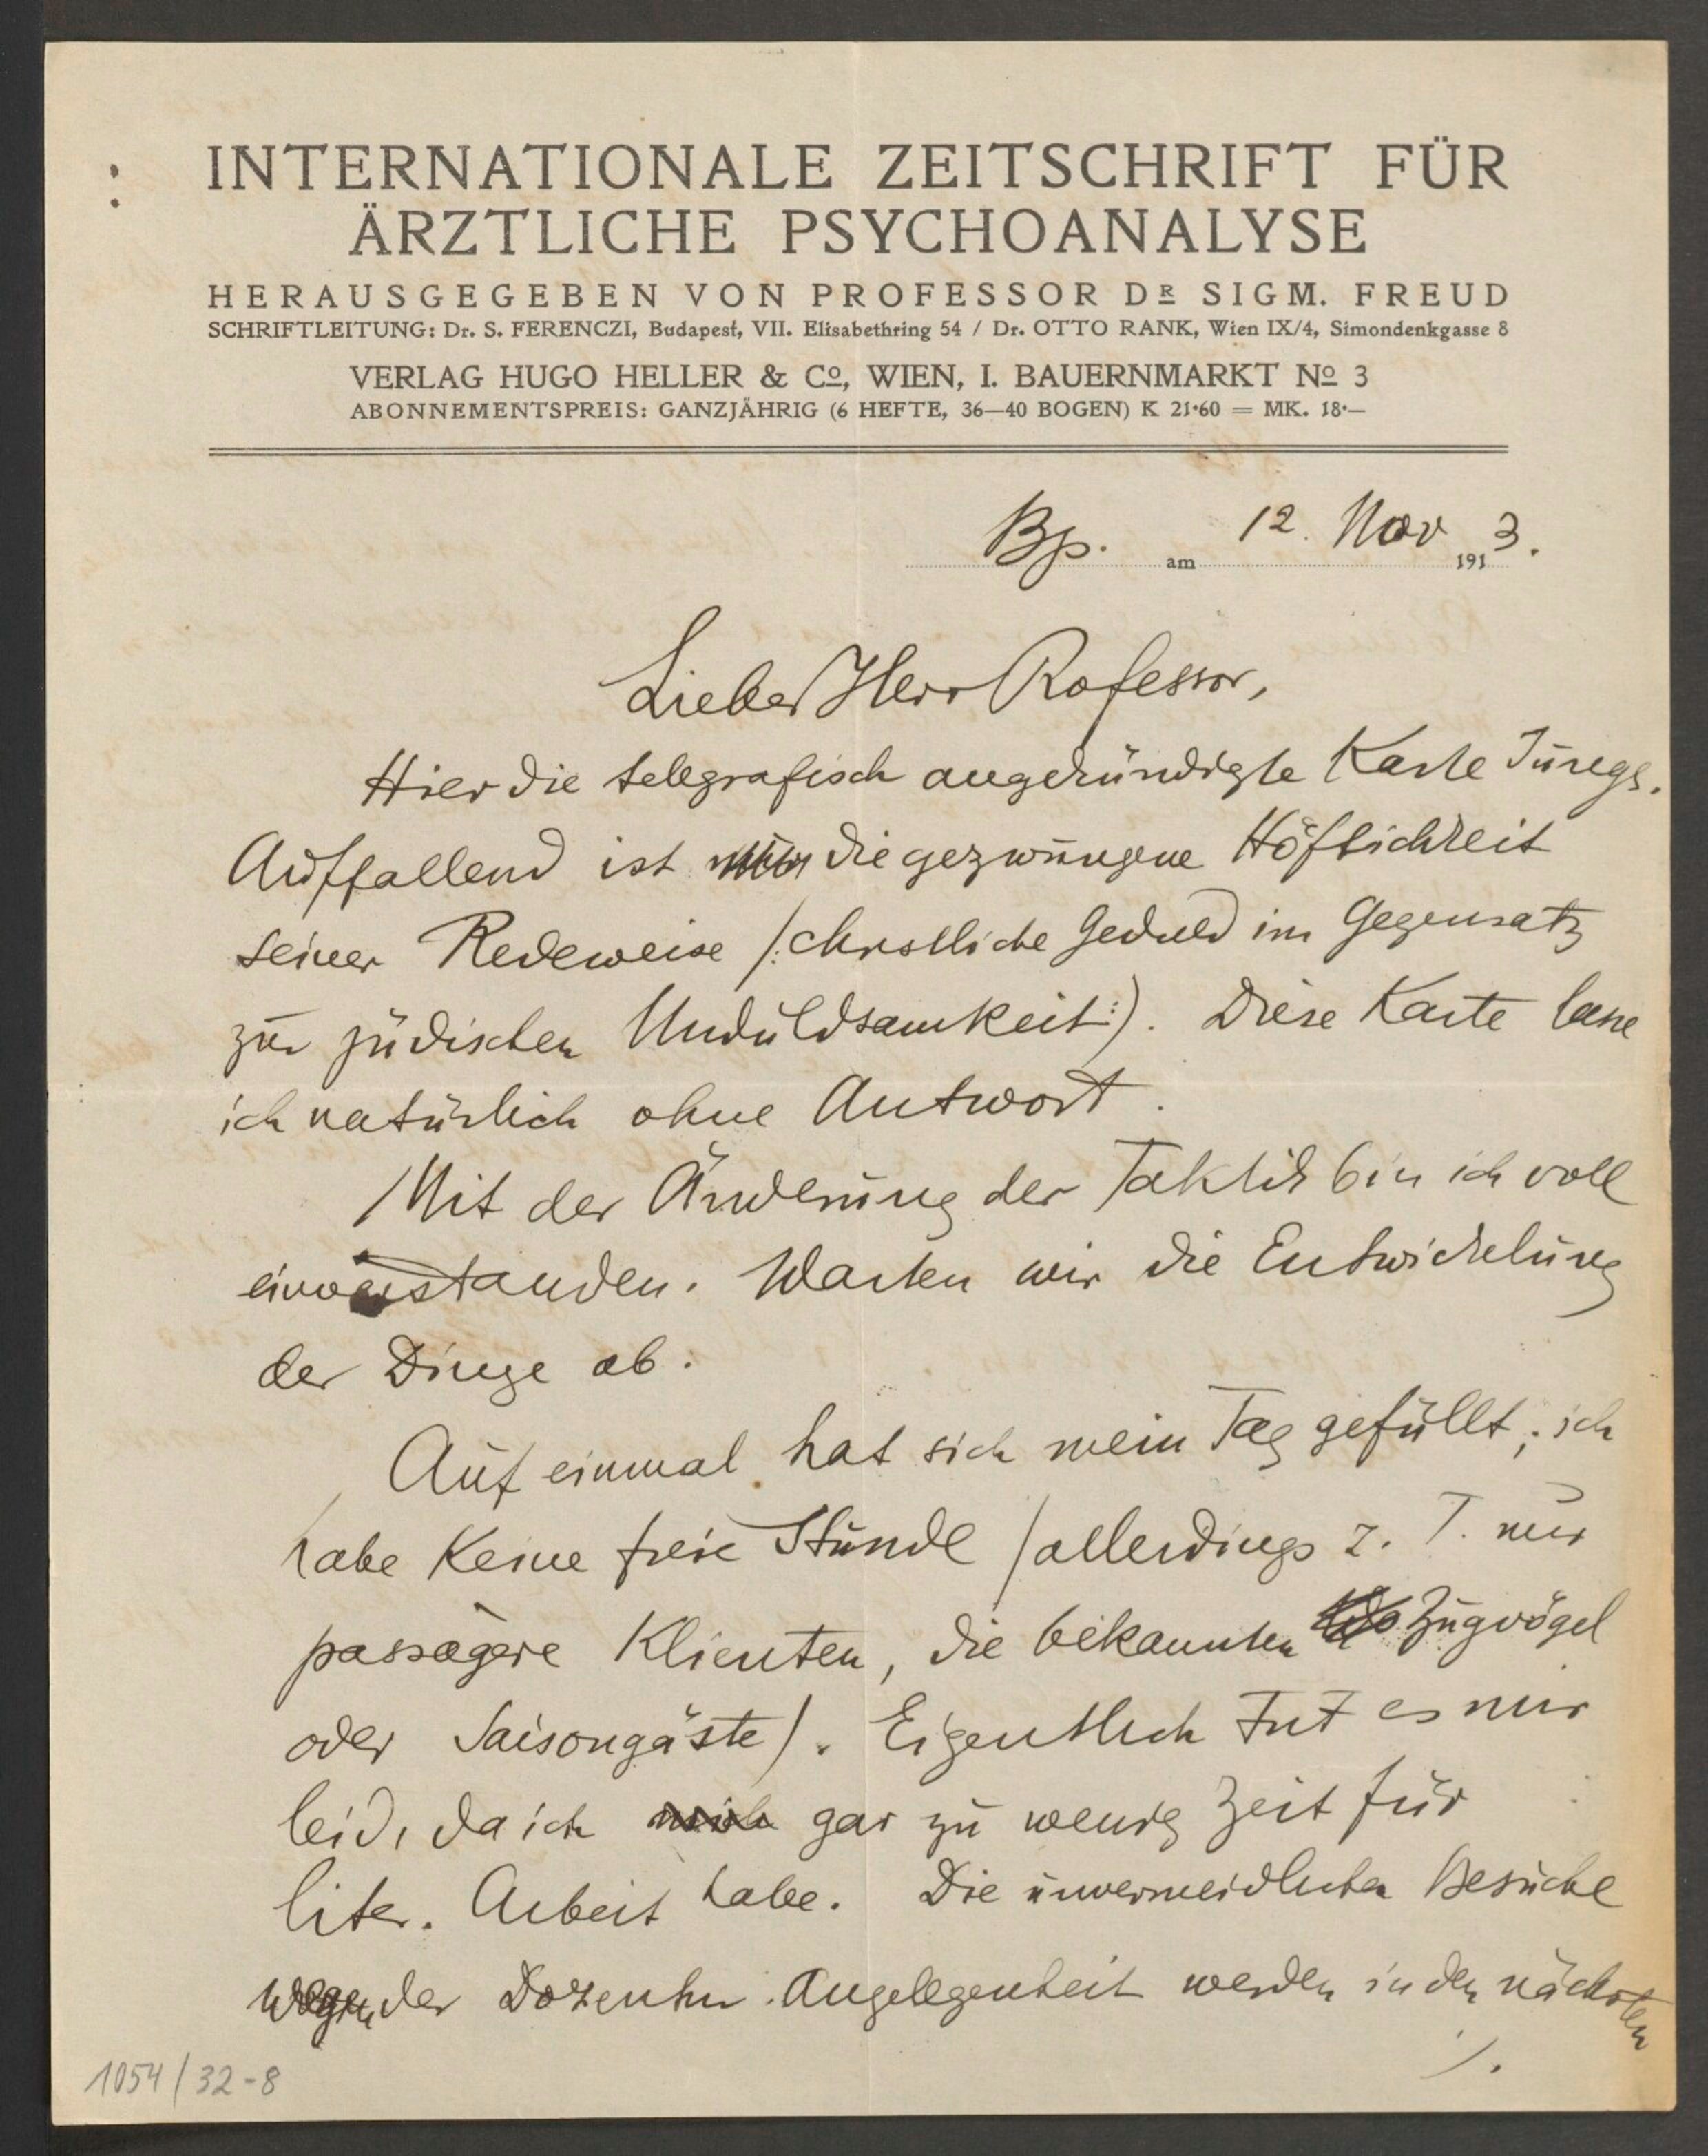 INTERNATIONALE ZEITSCHRIFT FÜR
ÄRZTLICHE PSYCHOANALYSE
HERAUSGEGEBEN VON PROFESSOR DR SIGM. FREUD
SCHRIFTLEITUNG: Dr. S. FERENCZI, Budapest, VII. Elisabethring 54 / Dr. OTTO RANK, Wien IX/4, Simondenkgasse 8
VERLAG HUGO HELLER & Co, WIEN, I. BAUERNMARKT No 3
ABONNEMENTSPREIS: GANZJÄHRIG (6 HEFTE, 36—40 BOGEN) K 21·60 = MK. 18·—
Bp. am 12. Nov 1913.
Lieber Herr Professor,
Hier die telegrafisch angekündigte Karte Jungs.
Auffallend ist die gezwungene Höflichkeit
seiner Redeweise (: christliche Geduld im Gegensatz
zur jüdischen Unduldsamkeit :). Diese Karte lasse
ich natürlich ohne Antwort.
Mit der Änderung der Taktik bin ich voll
einverstanden. Warten wir die Entwickelung
der Dinge ab.
Auf einmal hat sich mein Tag gefüllt; ich
habe keine freie Stunde (allerdings z. T. nur
passagere Klienten, die bekannten Zugvögel
oder Saisongäste). Eigentlich tut es mir
leid, da ich gar zu wenig Zeit für
liter. Arbeit habe. Die unvermeidlichen Besuche
wegen der Dozentur-Angelegenheit werden in den nächsten
./.
1054/32-8